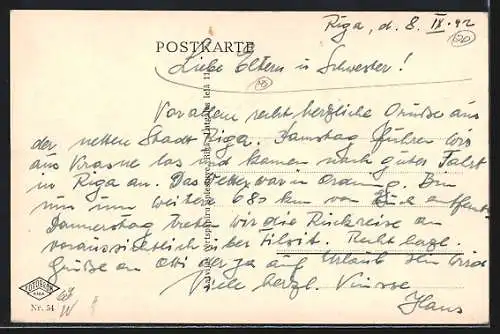 Riga, d. 8. IX. 42
POSTKARTE
Liebe Eltern u Schwester!
Vor allem recht herzliche Grüße aus
der netten Stadt Riga. Samstag fuhren wir
aus Krasne los und kamen nach guter Fahrt
in Riga an. Das Wetter war in Ordnung. Bin
nun nun weitere 680 km von entfernt
Donnerstag treten wir die Rückreise an
voraussichtlich über Tilsit. Recht herzl.
Grüße an Otti der ja auf Urlaub sein wird
Viele herzl. Küsse
Hans
FOTOBROM
RIGA
Nr. 54